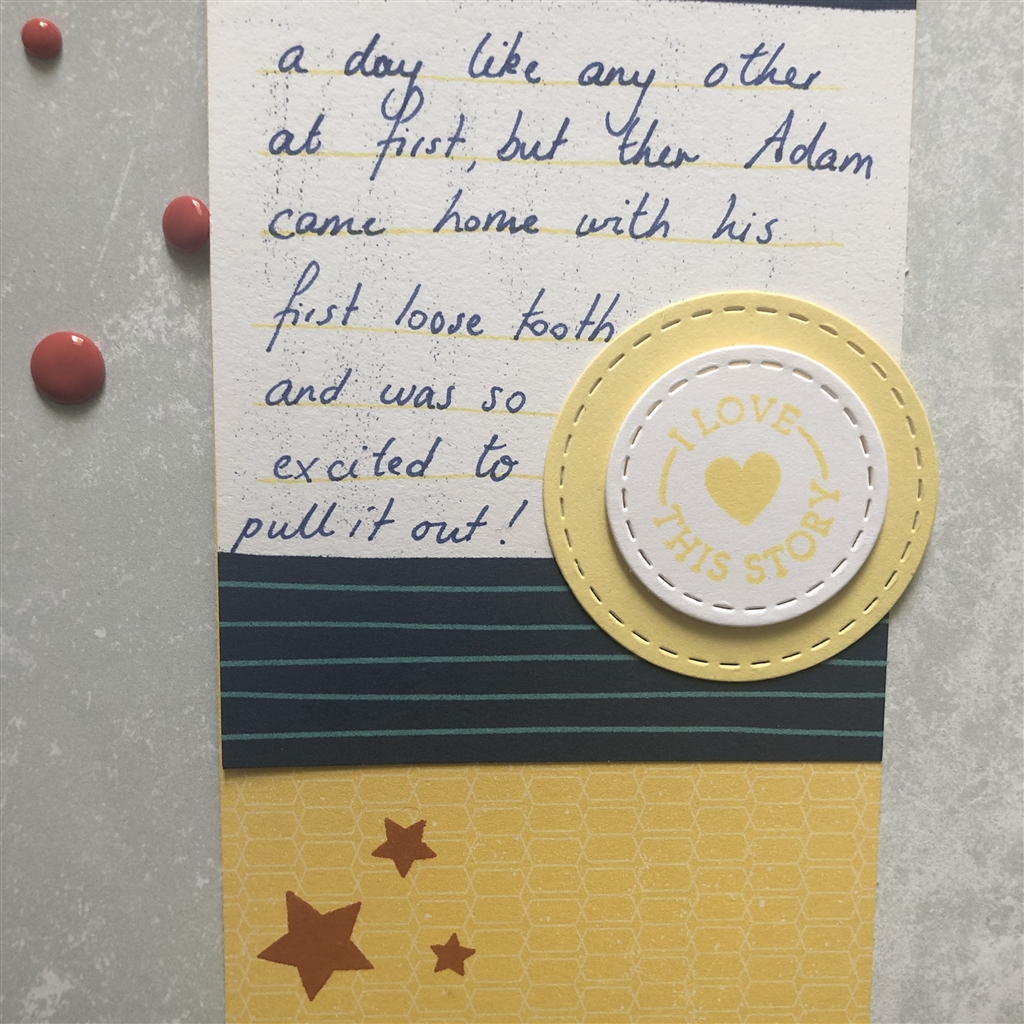 a day like any other
at first, but then Adam
came home with his
first loose tooth
and was so
excited to
pull it out!
I LOVE
THIS STORY